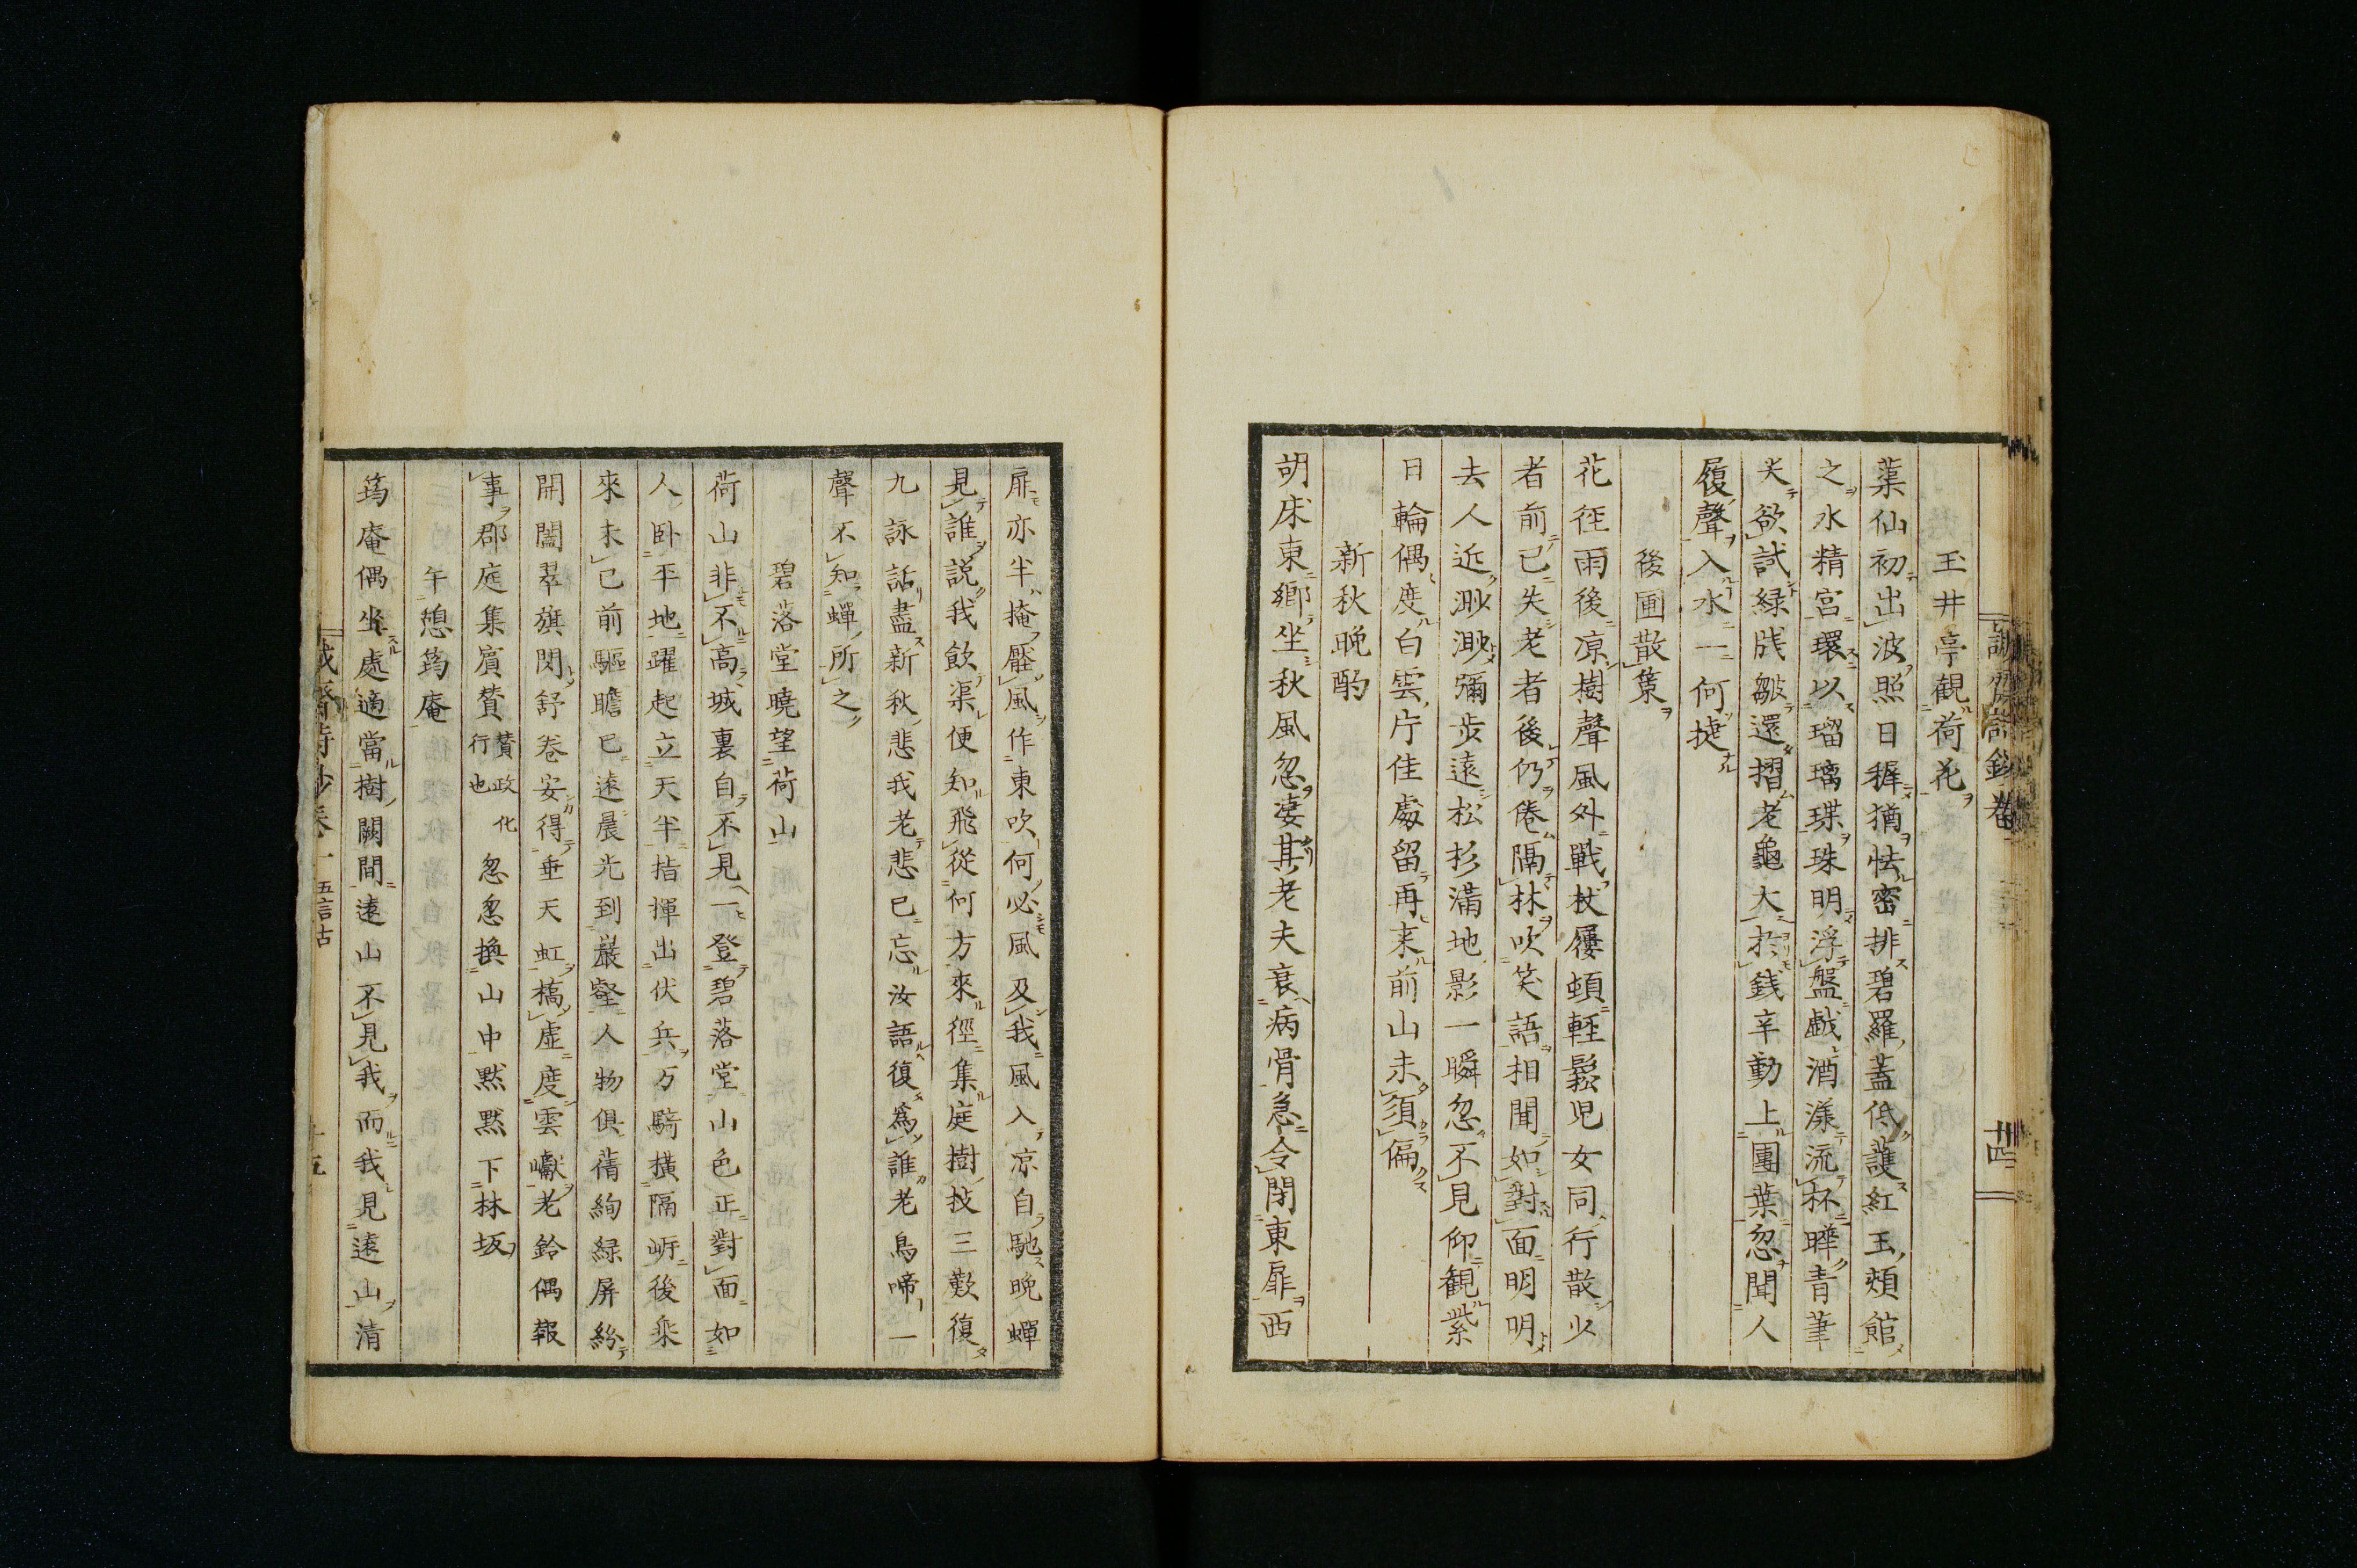 玉井亭観荷花
蕖仙初出波照日穉猶怯密排碧羅蓋低護紅玉頰館
之水精宮環以瑠璃堞珠明浮盤戯酒漾流杯曄青筆
尖欲試緑牋皺還摺老龜大於銭辛動上團葉忽聞人
履聲入水一何捷
後圃散策
花徑雨後凉樹聲風外戰杖屨頓輕鬆児女同行散少
者前已失老者後仍倦隔林吹笑語相聞如對面明明
去人近渺渺彌歩遠松杉滿地影一瞬忽不見仰観紫
日輪偶度白雲片佳處留再来前山未須偏
新秋晩酌
胡床東郷坐秋風忽凄其老夫衰病骨急令閉東扉西
扉亦半掩厭風作東吹何必風及我風入凉自馳晩蟬
見誰説我飲渠便知飛從何方來徑集庭樹技三歎復
九詠話盡新秋悲我老悲已忘汝語復為誰老烏啼一
聲不知蟬所之
碧落堂曉望荷山
荷山非不高城裏自不見一登碧落堂山色正對面如
人卧平地躍起立天半指揮出伏兵万騎横隔岍後乘
來未已前驅瞻已遠晨光到巖壑人物倶蒨絢緑屏紛
開闔翠旗閃舒卷安得垂天虹橋虚度雲巘老鈴偶報
事郡庭集賓賛賛政化行也忽忽換山中黙黙下林坂
午憩筠庵
筠庵偶坐處適當樹闕間遠山不見我而我見遠山清
誠齋詩鈔卷一 五言古